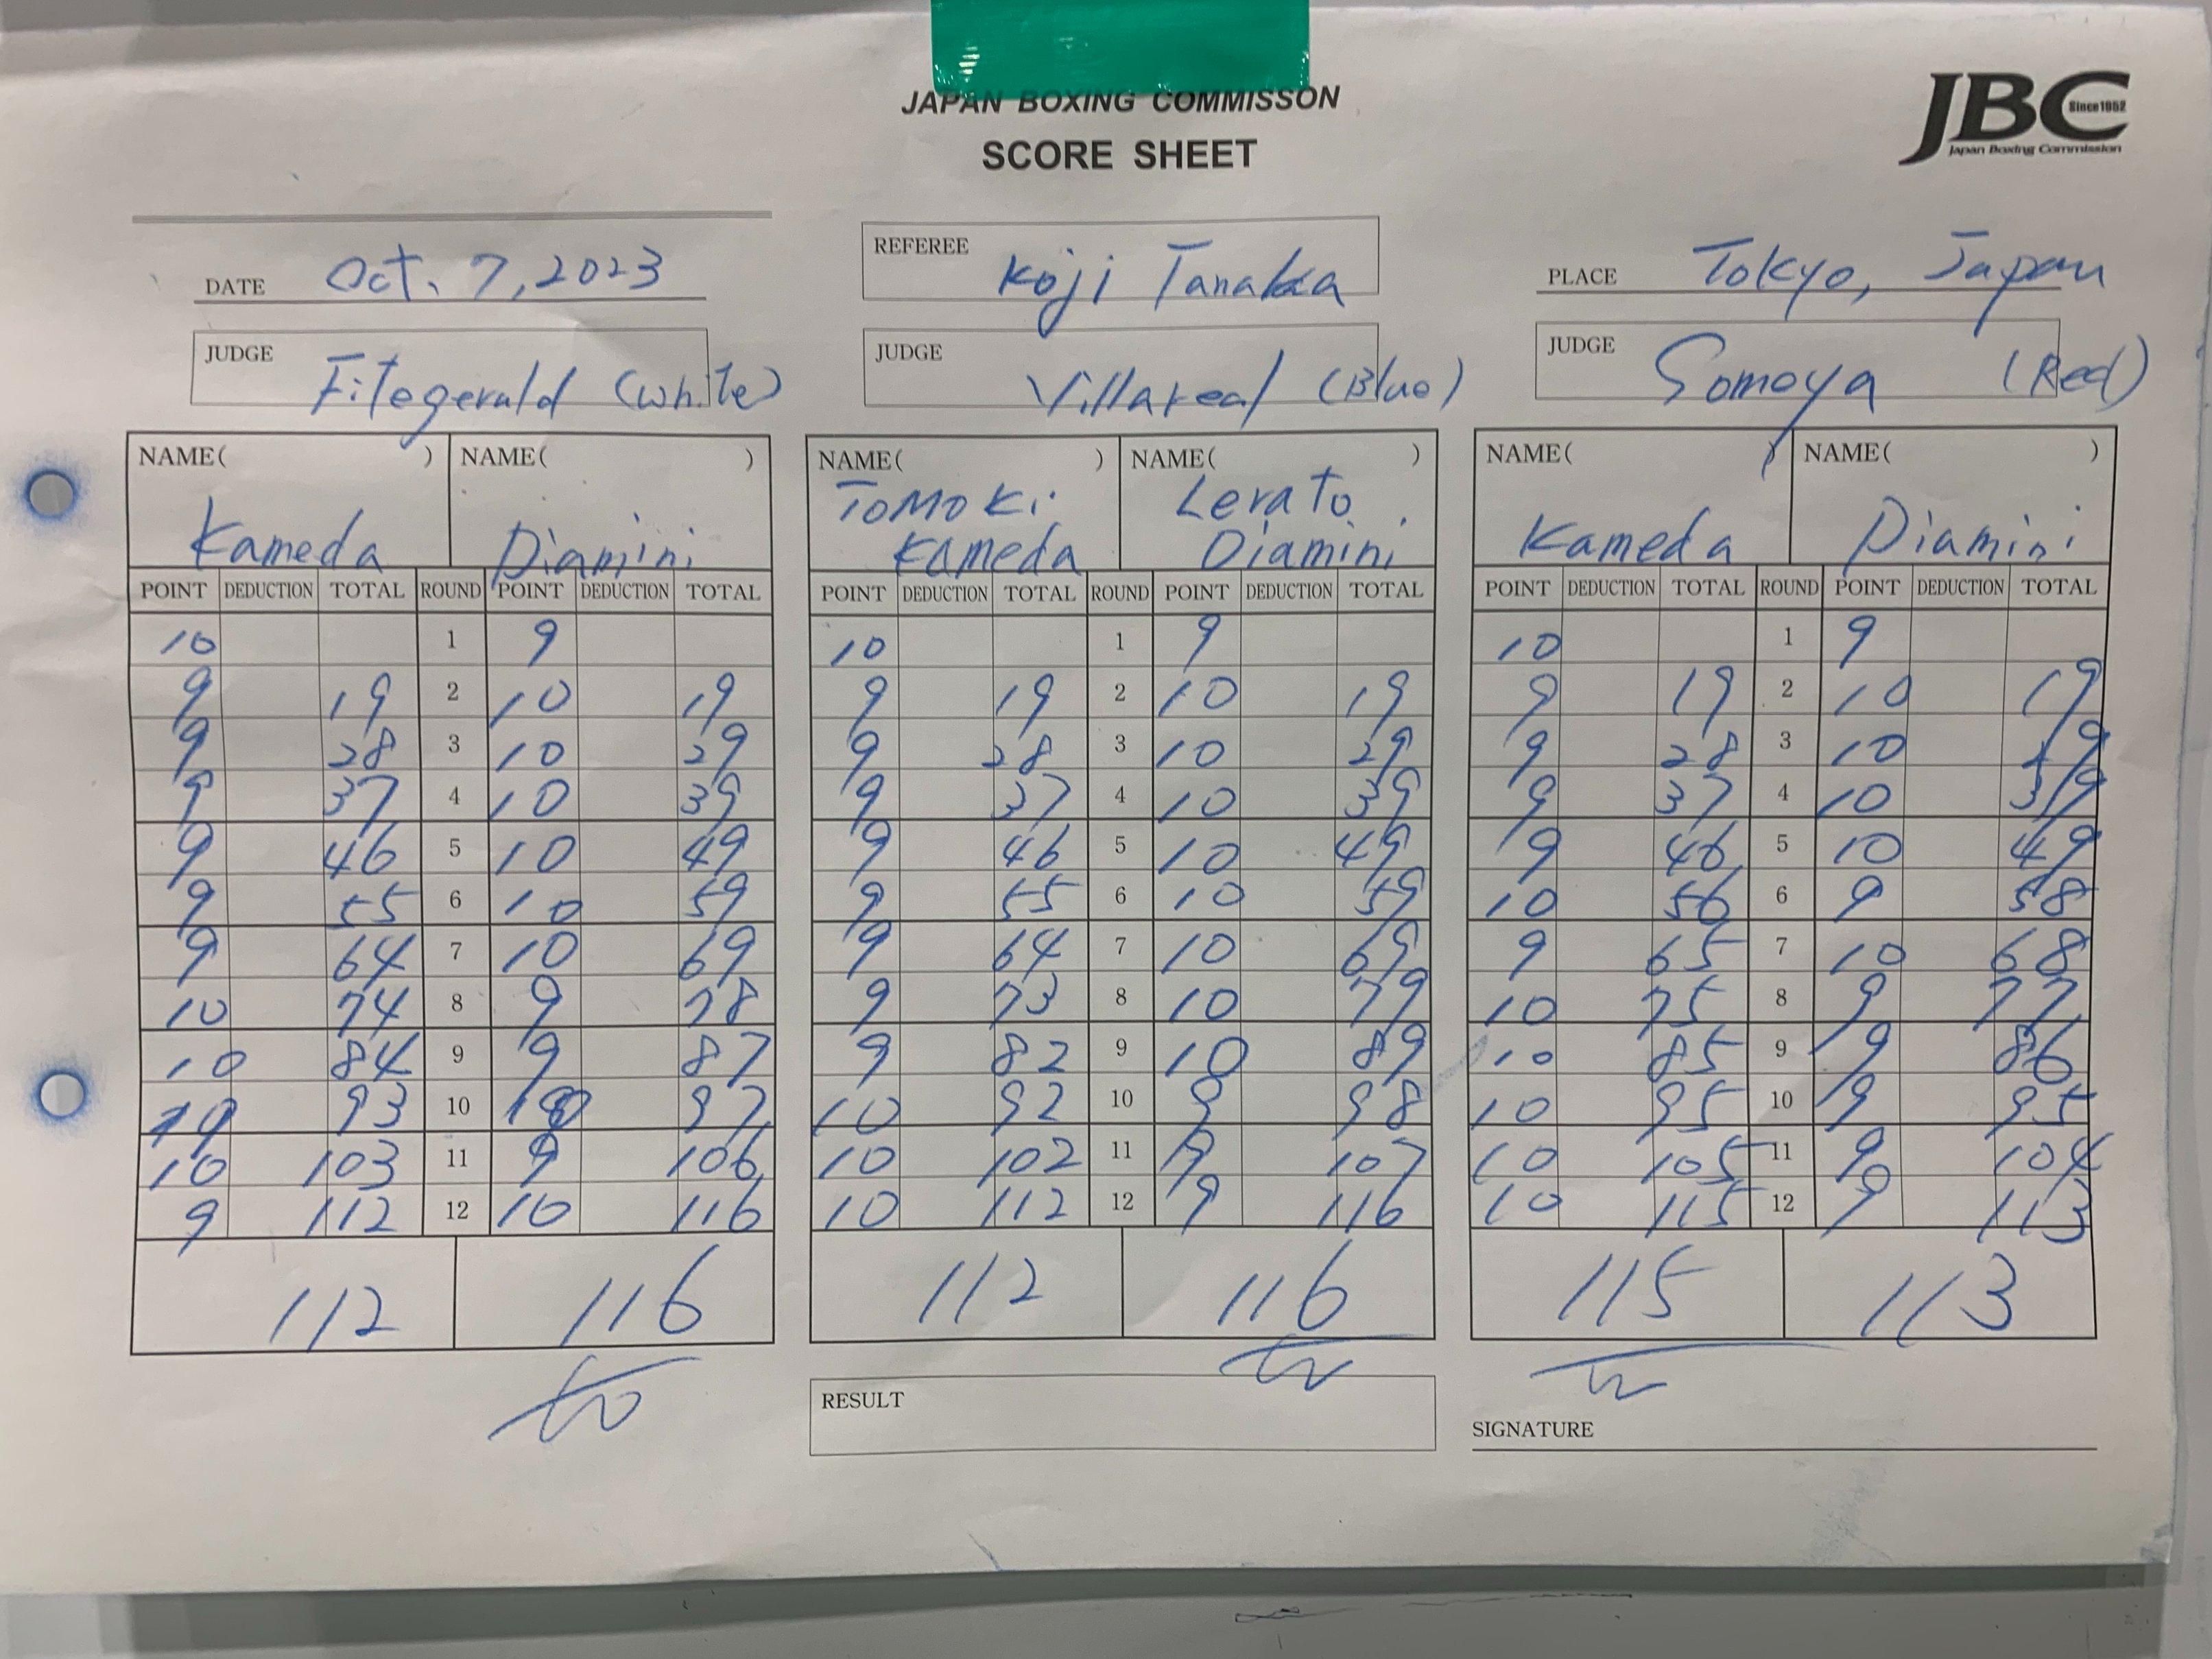 JAPAN BOXING COMMISSON
SCORE SHEET
JBC
Since1952
Japan Boxing Commission
DATE Oct. 7, 2023
REFEREE Koji Tanaka
PLACE Tokyo, Japan
JUDGE Fitegerald (White)
JUDGE Villareal (Blue)
JUDGE Somoya (Red)
NAME( ) NAME( ) NAME( ) NAME( ) NAME( ) NAME( )
Kameda Diamini TOMOKi KAMEDA Lerato Diamini Kameda Diamini
POINT DEDUCTION TOTAL ROUND POINT DEDUCTION TOTAL POINT DEDUCTION TOTAL ROUND POINT DEDUCTION TOTAL POINT DEDUCTION TOTAL ROUND POINT DEDUCTION TOTAL
10 1 9 10 1 9 10 1 9
9 19 2 10 19 9 19 2 10 19 9 19 2 10 19
9 28 3 10 29 9 28 3 10 29 9 28 3 10 29
9 37 4 10 39 9 37 4 10 39 9 37 4 10 39
9 46 5 10 49 9 46 5 10 49 9 46 5 10 49
9 55 6 10 59 9 55 6 10 59 10 56 6 9 58
9 64 7 10 69 9 64 7 10 69 9 65 7 10 68
10 74 8 9 78 9 73 8 10 79 10 75 8 9 77
10 84 9 9 87 9 82 9 10 89 10 85 9 9 86
9 93 10 10 97 10 92 10 9 98 10 95 10 9 95
10 103 11 9 106 10 102 11 9 107 10 105 11 9 104
9 112 12 10 116 10 112 12 9 116 10 115 12 9 113
112 116 112 116 115 113
RESULT
SIGNATURE